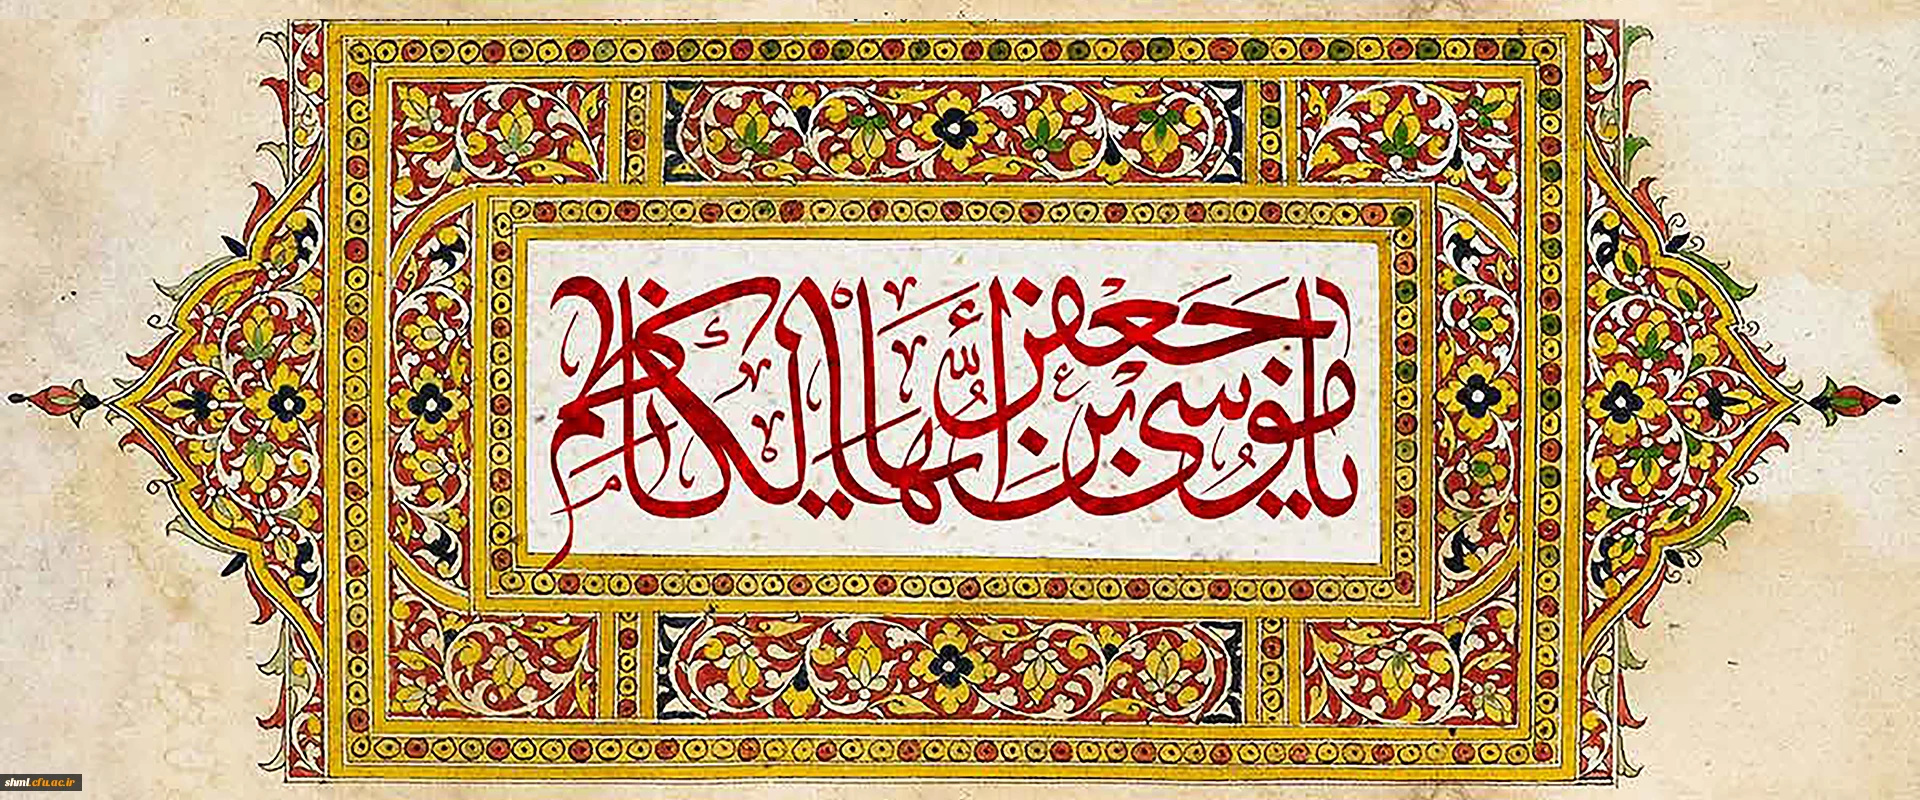 یا موسی بن جعفر ایها الکاظم
shml.cfu.ac.ir